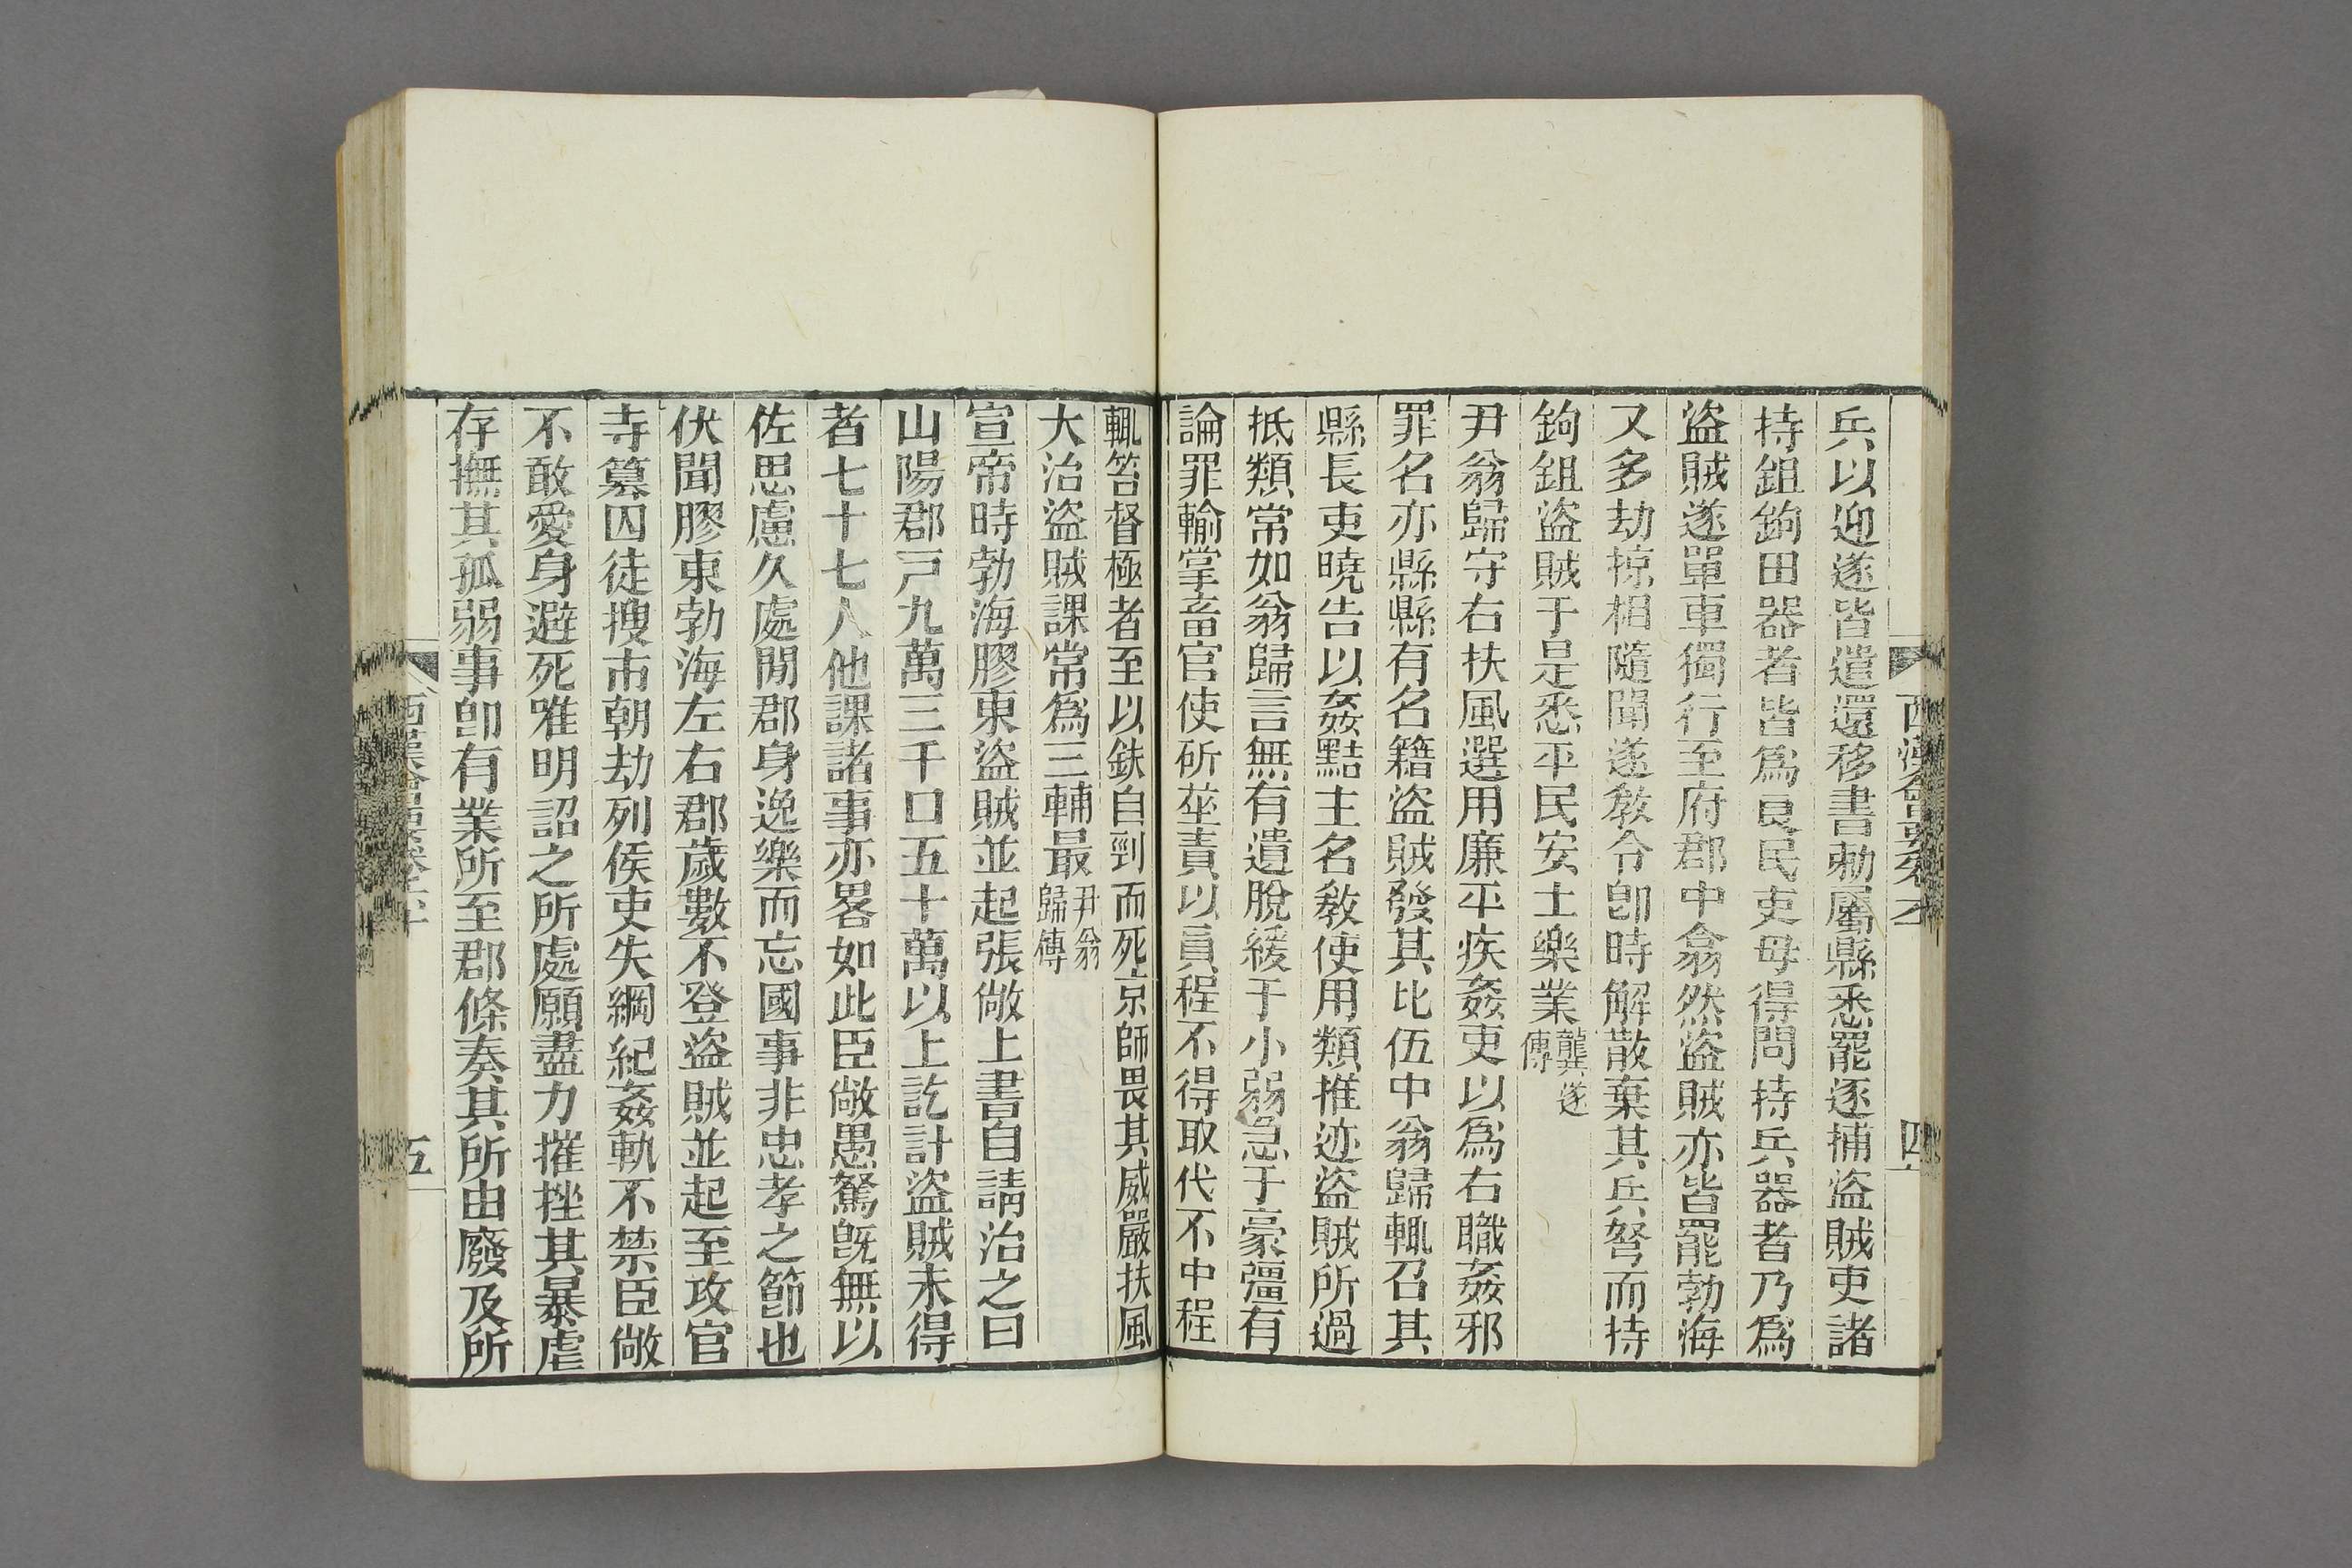 兵以迎遂皆遣還移書勅屬縣悉罷逐捕盜賊吏諸
持鉏鉤田器者皆爲良民吏毋得問持兵器者乃爲
盜賊遂單車獨行至府郡中翕然盜賊亦皆罷勃海
又多劫掠相隨聞遂敎令卽時解散棄其兵弩而持
鉤鉏盜賊于是悉平民安土樂業龔遂傳
尹翁歸守右扶風選用廉平疾姦吏以爲右職姦邪
罪名亦縣縣有名籍盜賊發其比伍中翁歸輒召其
縣長吏曉告以姦黠主名敎使用類推迹盜賊所過
抵類常如翁歸言無有遺脫緩于小弱急于豪彊有
論罪輸掌畜官使斫莝責以員程不得取代不中程
輒笞督極者至以鈇自剄而死京師畏其威嚴扶風
大治盜賊課常爲三輔最尹翁歸傳
宣帝時勃海膠東盜賊並起張敞上書自請治之曰
山陽郡戸九萬三千口五十萬以上訖計盜賊未得
者七十七人他課諸事亦畧如此臣敞愚駑旣無以
佐思慮久處閒郡身逸樂而忘國事非忠孝之節也
伏聞膠東勃海左右郡歲數不登盜賊並起至攻官
寺簒囚徒搜市朝劫列侯吏失綱紀姦軌不禁臣敞
不敢愛身避死唯明詔之所處願盡力摧挫其暴虐
存撫其孤弱事卽有業所至郡條奏其所由廢及所
西漢會要卷
四
五